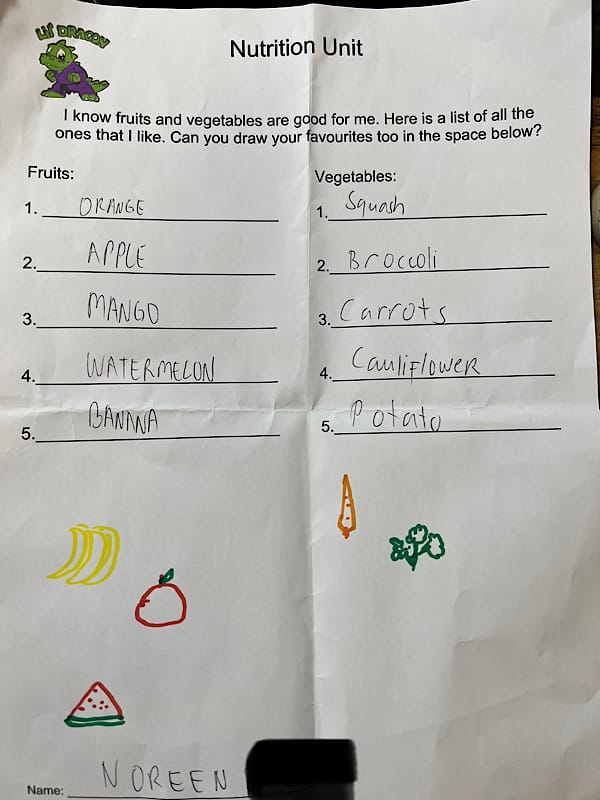 Lil' DRAGON
Nutrition Unit
I know fruits and vegetables are good for me. Here is a list of all the
ones that I like. Can you draw your favourites too in the space below?
Fruits:
1. ORANGE
2. APPLE
3. MANGO
4. WATERMELON
5. BANANA
Vegetables:
1. Squash
2. Broccoli
3. Carrots
4. Cauliflower
5. Potato
Name: NOREEN